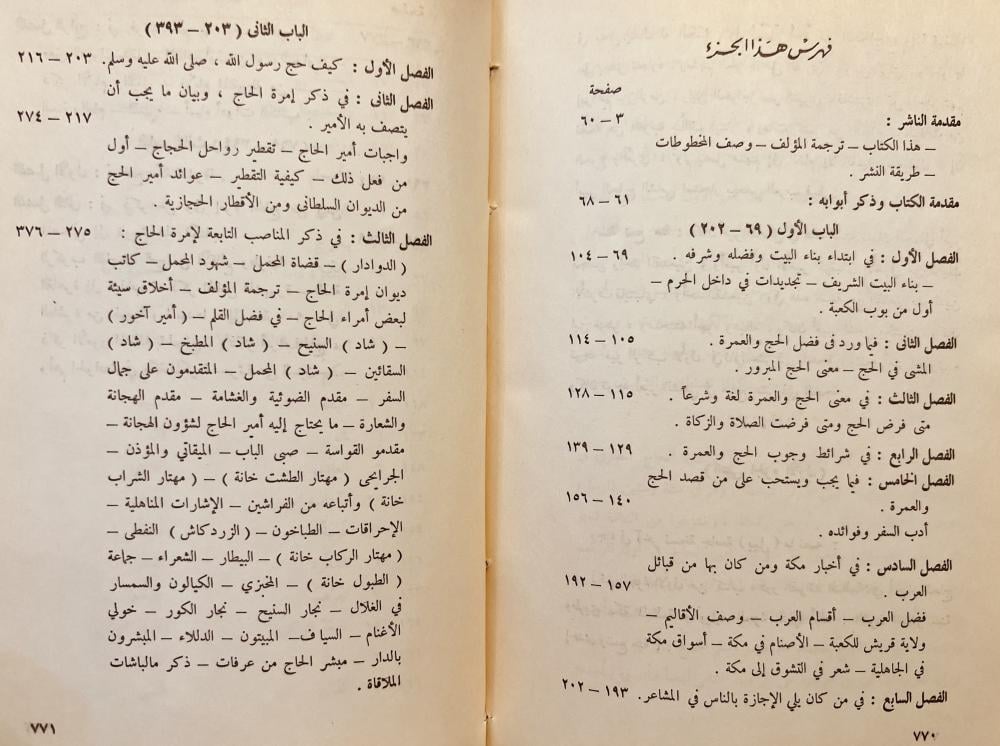 فهرس هذا الجزء
صفحة
مقدمة الناشر : ٣ – ٦٠
– هذا الكتاب – ترجمة المؤلف – وصف المخطوطات
– طريقة النشر .
مقدمة الكتاب وذكر أبوابه : ٦١ – ٦٨
الباب الأول ( ٦٩ – ٢٠٢ )
الفصل الأول : في ابتداء بناء البيت وفضله وشرفه . ٦٩ – ١٠٤
– بناء البيت الشريف – تجديدات في داخل الحرم –
أول من بوب الكعبة .
الفصل الثانى : فيما ورد فى فضل الحج والعمرة . ١٠٥ – ١١٤
المشى في الحج – معنى الحج المبرور .
الفصل الثالث : في معنى الحج والعمرة لغة وشرعاً . ١١٥ – ١٢٨
متى فرض الحج ومتى فرضت الصلاة والزكاة .
الفصل الرابع : في شرائط وجوب الحج والعمرة . ١٢٩ – ١٣٩
الفصل الخامس : فيما يجب ويستحب على من قصد الحج
والعمرة . ١٤٠ – ١٥٦
أدب السفر وفوائده .
الفصل السادس : في أخبار مكة ومن كان بها من قبائل
العرب . ١٥٧ – ١٩٢
فضل العرب – أقسام العرب – وصف الأقاليم –
ولاية قريش للكعبة – الأصنام في مكة – أسواق مكة
في الجاهلية – شعر في التشوق إلى مكة .
الفصل السابع : في من كان يلي الإجازة بالناس في المشاعر. ١٩٣ – ٢٠٢
٧٧٠
الباب الثانى ( ٢٠٣ – ٣٩٣ )
الفصل الأول : كيف حج رسول الله ، صلى الله عليه وسلم. ٢٠٣ – ٢١٦
الفصل الثانى : في ذكر إمرة الحاج ، وبيان ما يجب أن
يتصف به الأمير . ٢١٧ – ٢٧٤
واجبات أمير الحاج – تقطير رواحل الحجاج – أول
من فعل ذلك – كيفية التقطير – عوائد أمير الحج
من الديوان السلطانى ومن الأقطار الحجازية .
الفصل الثالث : في ذكر المناصب التابعة لإمرة الحاج : ٢٧٥ – ٣٧٦
( الدوادار ) – قضاة المحمل – شهود المحمل – كاتب
ديوان إمرة الحاج – ترجمة المؤلف – أخلاق سيئة
لبعض أمراء الحاج – في فضل القلم – ( أمير آخور )
– ( شاد ) السنيح – ( شاد ) المطبخ – ( شاد )
السقائين – ( شاد ) المحمل – المتقدمون على جمال
السفر – مقدم الضوئية والغشامة – مقدم الهجانة
والشعارة – ما يحتاج إليه أمير الحاج لشؤون الهجانة –
مقدمو القواسة – صبى الباب – الميقاتي والمؤذن –
الجرايحى ( مهتار الطشت خانة ) – ( مهتار الشراب
خانة ) وأتباعه من الفراشين – الإشارات المناهلية –
الإحراقات – الطباخون – ( الزردكاش ) النفطى –
( مهتار الركاب خانة ) – البيطار – الشعراء – جماعة
( الطبول خانة ) – المخبزي – الكيالون والسمسار
في الغلال – نجار السنيح – نجار الكور – خولي
الأغنام – السياف – المبيتون – الدللاء – المبشرون
بالدار – مبشر الحاج من عرفات – ذكر مالباشات
الملاقاة .
٧٧١